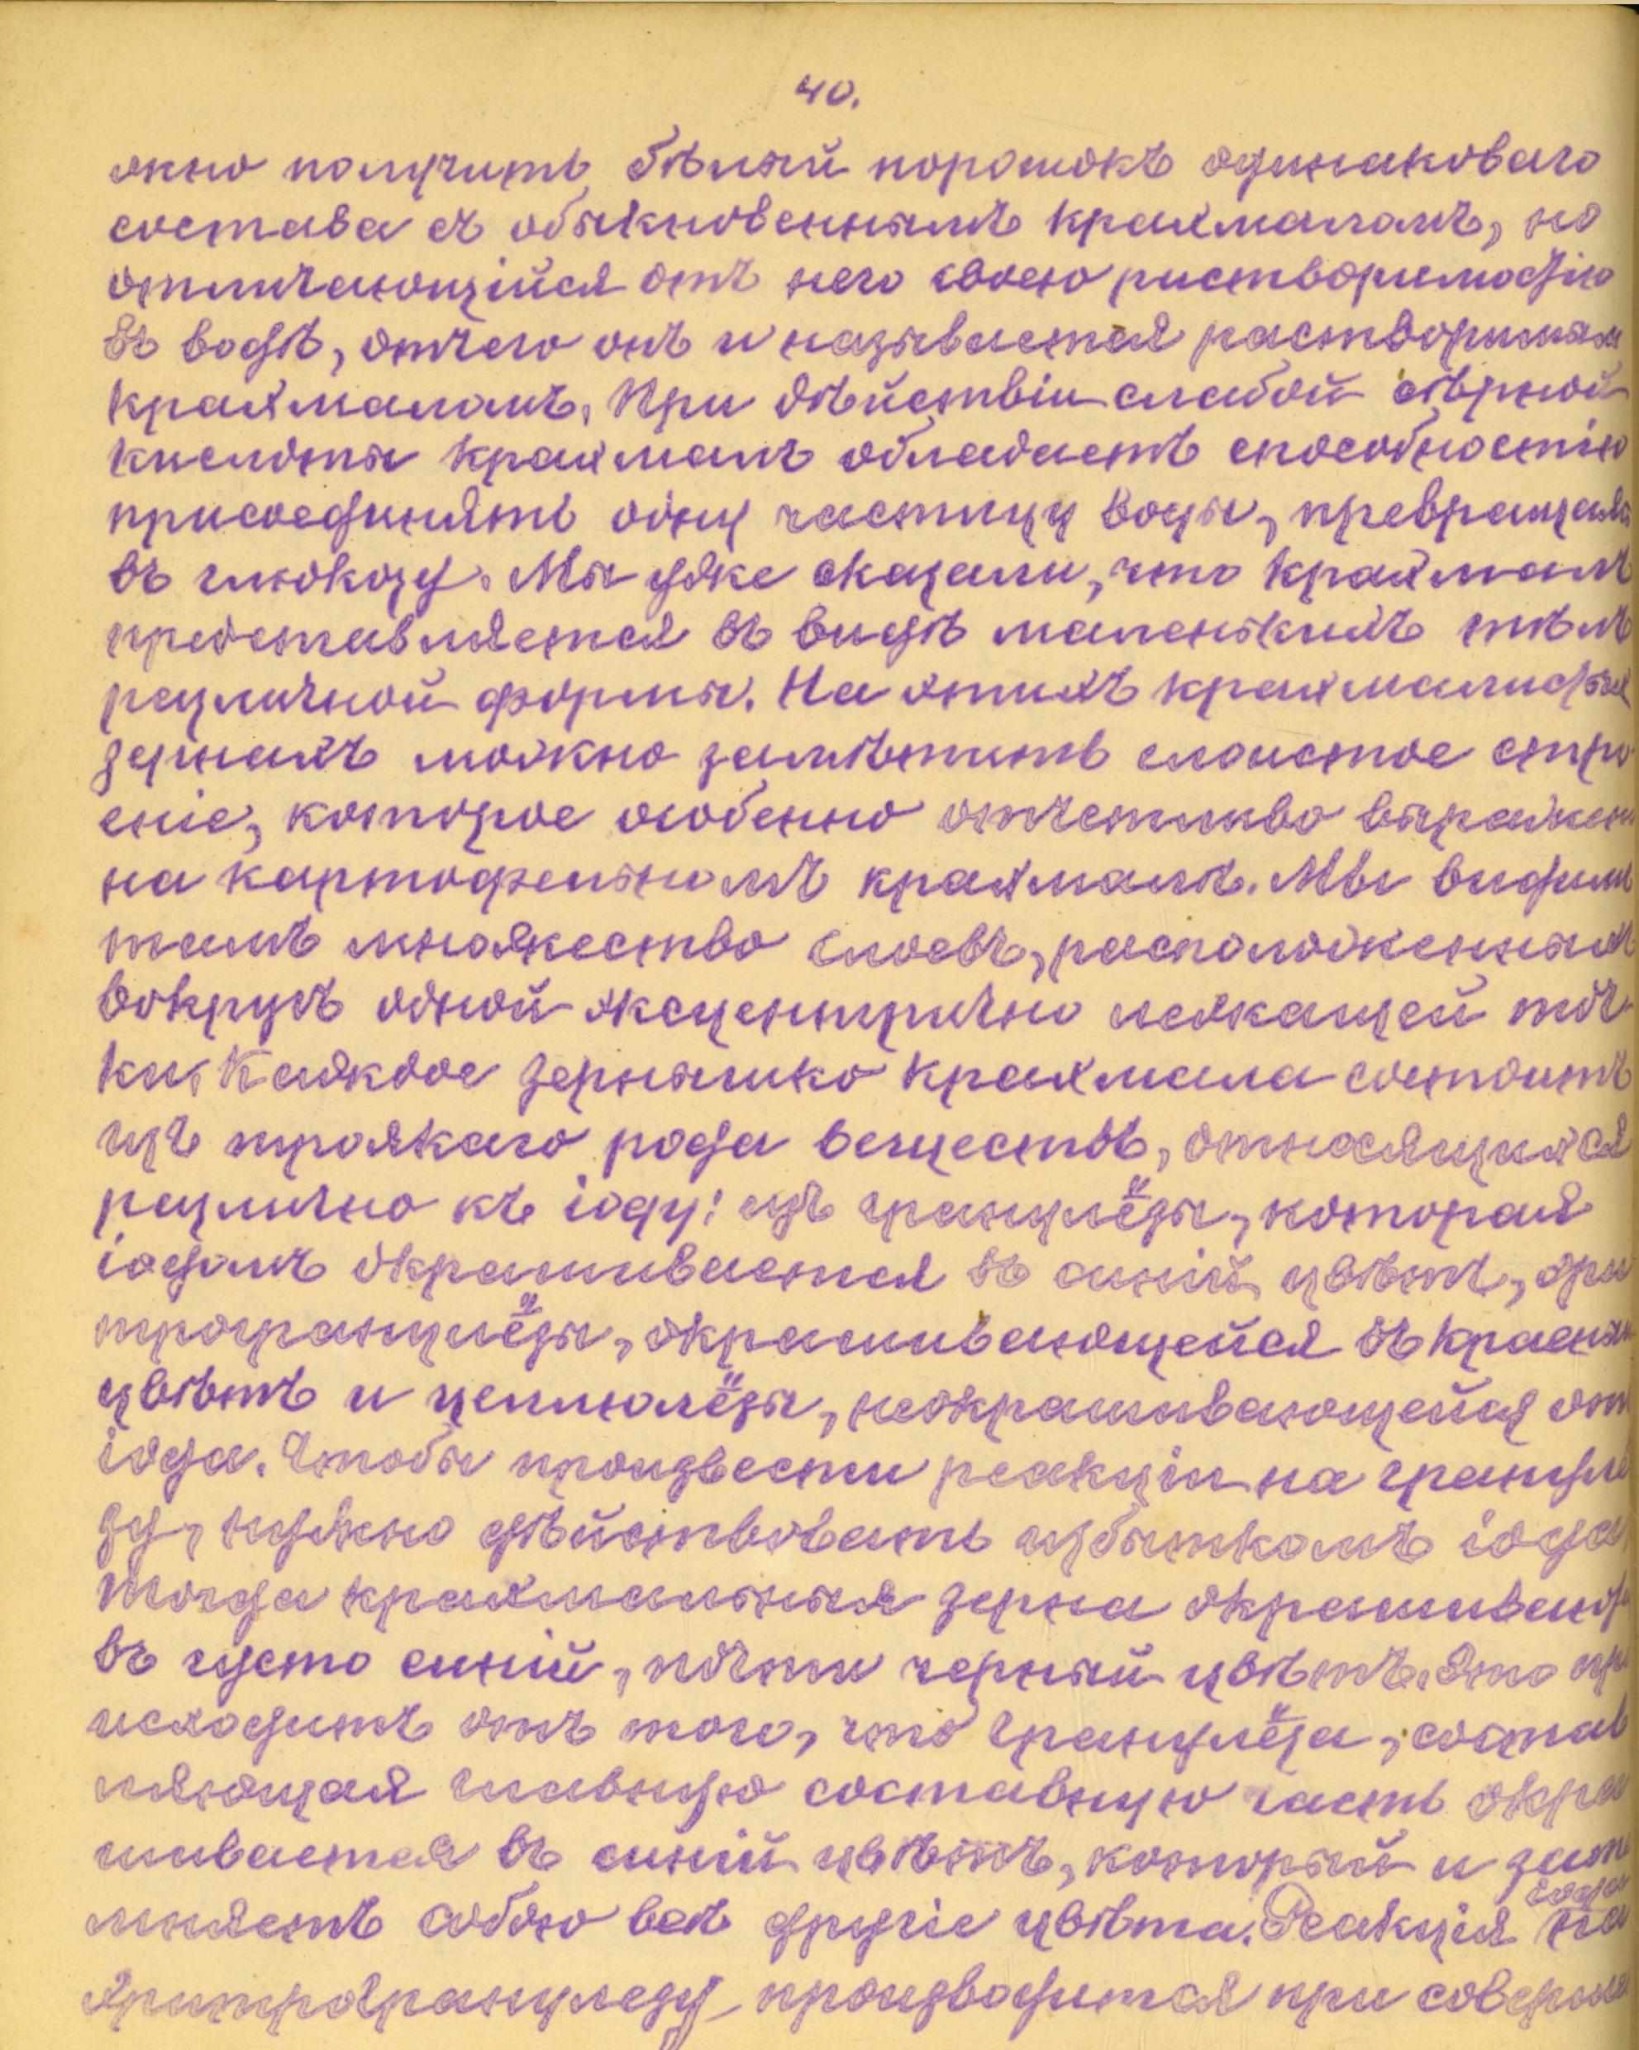 40.
жно получить бѣлый порошокъ одинаковаго
состава съ обыкновеннымъ крахмаломъ, но
отличающійся отъ него своею растворимостію
въ водѣ, отчего онъ и называется растворимым
крахмаломъ. При дѣйствіи слабой сѣрной
кислоты крахмалъ обладаетъ способностію
присоединять одну частицу воды, превращаяс
въ глюкозу. Мы уже сказали, что крахмалъ
представляется въ видѣ маленькихъ тѣлъ
различной формы. На этихъ крахмалистых
зернахъ можно замѣтить слоистое стро
еніе, которое особенно отчетливо выражен
на картофельномъ крахмалѣ. Мы видим
тамъ множество слоевъ, расположенныхъ
вокругъ одной эксцентрично лежащей точ-
ки. Каждое зернышко крахмала состоитъ
изъ троякаго рода веществъ, относящихся
различно къ іоду: изъ гранулёзы, которая
іодомъ окрашивается въ синій цвѣтъ, эри
трогранулёзы, окрашивающейся въ красный
цвѣтъ и целлюлёзы, неокрашивающейся от
іода. Чтобы произвести реакцію на грануле
зу, нужно дѣйствовать избыткомъ іода,
тогда крахмальныя зерна окрашивают
въ густо синій, почти черный цвѣтъ. Это про
исходитъ отъ того, что гранулёза, состав
ляющая главную составную часть окра
шивается въ синій цвѣтъ, который и зат
мняетъ собою всѣ другіе цвѣта. Реакція іода на
эритрогранулезу производится при соверше